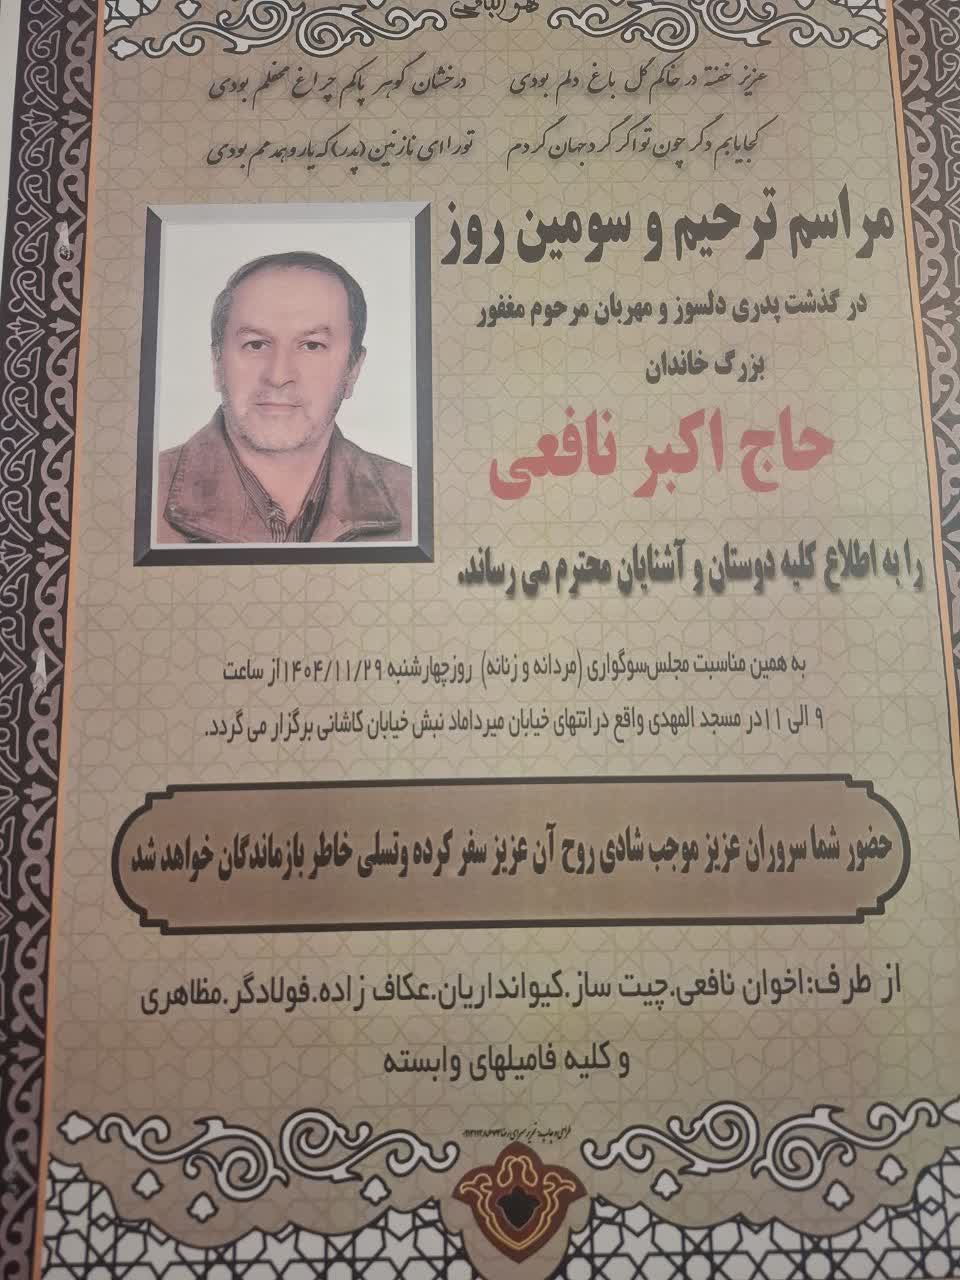 هو الباقی
عزیز خفته در خاکم گل باغ دلم بودی
درخشان گوهر پاکم چراغ محفلم بودی
کجا یابم دگر چون تو اگر گرد جهان گردم
تو را ای نازنین (پدر) که یار و همدمم بودی
مراسم ترحیم و سومین روز
در گذشت پدری دلسوز و مهربان مرحوم مغفور
بزرگ خاندان
حاج اکبر نافعی
را به اطلاع کلیه دوستان و آشنایان محترم می رساند.
به همین مناسبت مجلس سوگواری (مردانه و زنانه) روز چهارشنبه ۱۴۰۴/۱۱/۲۹ از ساعت
۹ الی ۱۱ در مسجد المهدی واقع در انتهای خیابان میرداماد نبش خیابان کاشانی برگزار می گردد.
حضور شما سروران عزیز موجب شادی روح آن عزیز سفر کرده وتسلی خاطر بازماندگان خواهد شد
از طرف:اخوان نافعی.چیت ساز.کیوانداریان.عکاف زاده.فولادگر.مظاهری
و کلیه فامیلهای وابسته